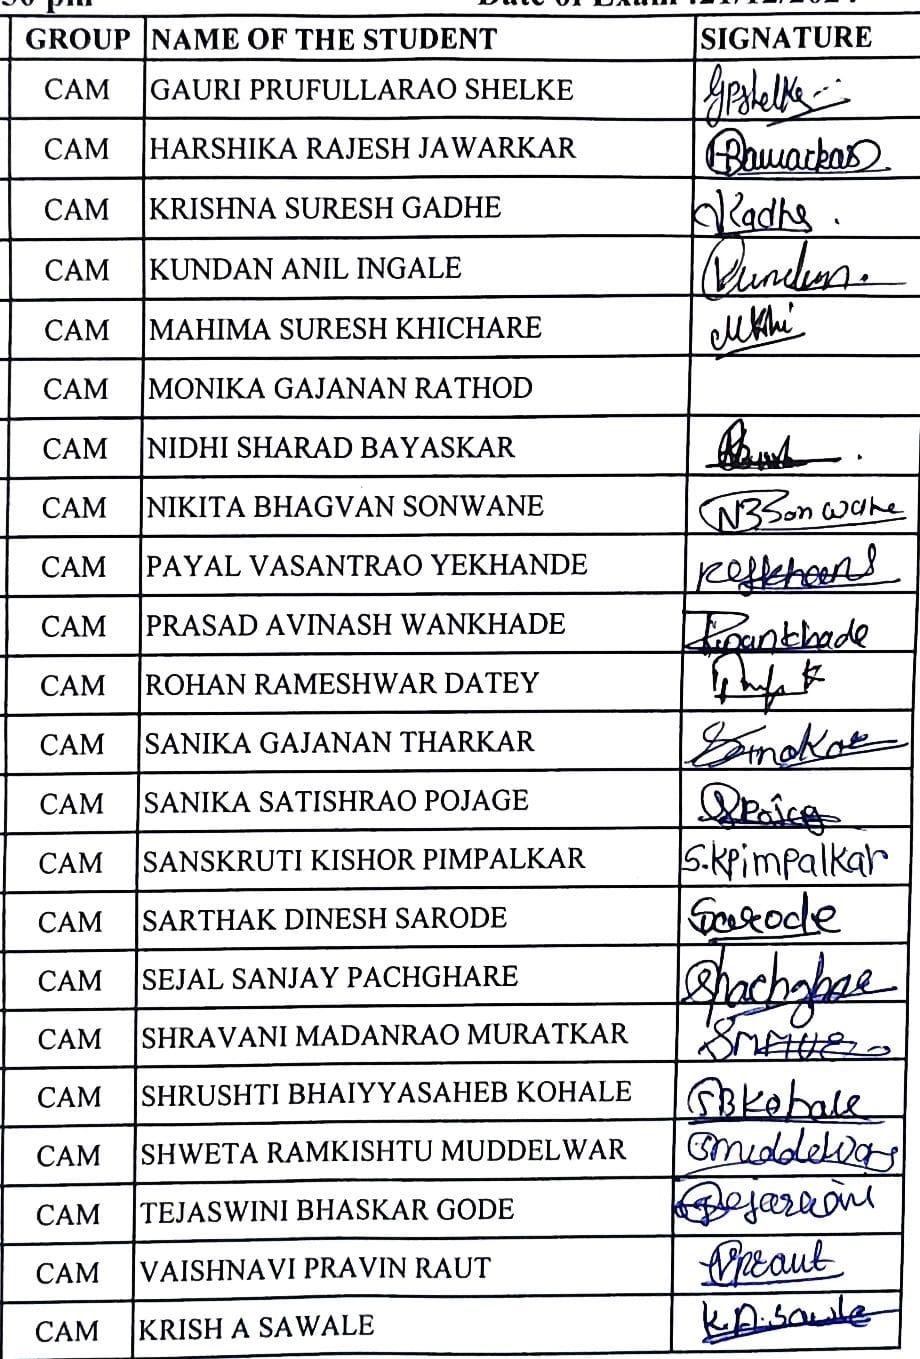 Date of Exam :21/12/2024
GROUP NAME OF THE STUDENT SIGNATURE
CAM GAURI PRUFULLARAO SHELKE GPShelke
CAM HARSHIKA RAJESH JAWARKAR
CAM KRISHNA SURESH GADHE
CAM KUNDAN ANIL INGALE
CAM MAHIMA SURESH KHICHARE
CAM MONIKA GAJANAN RATHOD
CAM NIDHI SHARAD BAYASKAR
CAM NIKITA BHAGVAN SONWANE NBSonwane
CAM PAYAL VASANTRAO YEKHANDE
CAM PRASAD AVINASH WANKHADE
CAM ROHAN RAMESHWAR DATEY
CAM SANIKA GAJANAN THARKAR
CAM SANIKA SATISHRAO POJAGE
CAM SANSKRUTI KISHOR PIMPALKAR S.KPimpalkar
CAM SARTHAK DINESH SARODE Sarode
CAM SEJAL SANJAY PACHGHARE
CAM SHRAVANI MADANRAO MURATKAR
CAM SHRUSHTI BHAIYYASAHEB KOHALE SBKohale
CAM SHWETA RAMKISHTU MUDDELWAR SMuddelwar
CAM TEJASWINI BHASKAR GODE
CAM VAISHNAVI PRAVIN RAUT VPRaut
CAM KRISH A SAWALE K.A.Sawale